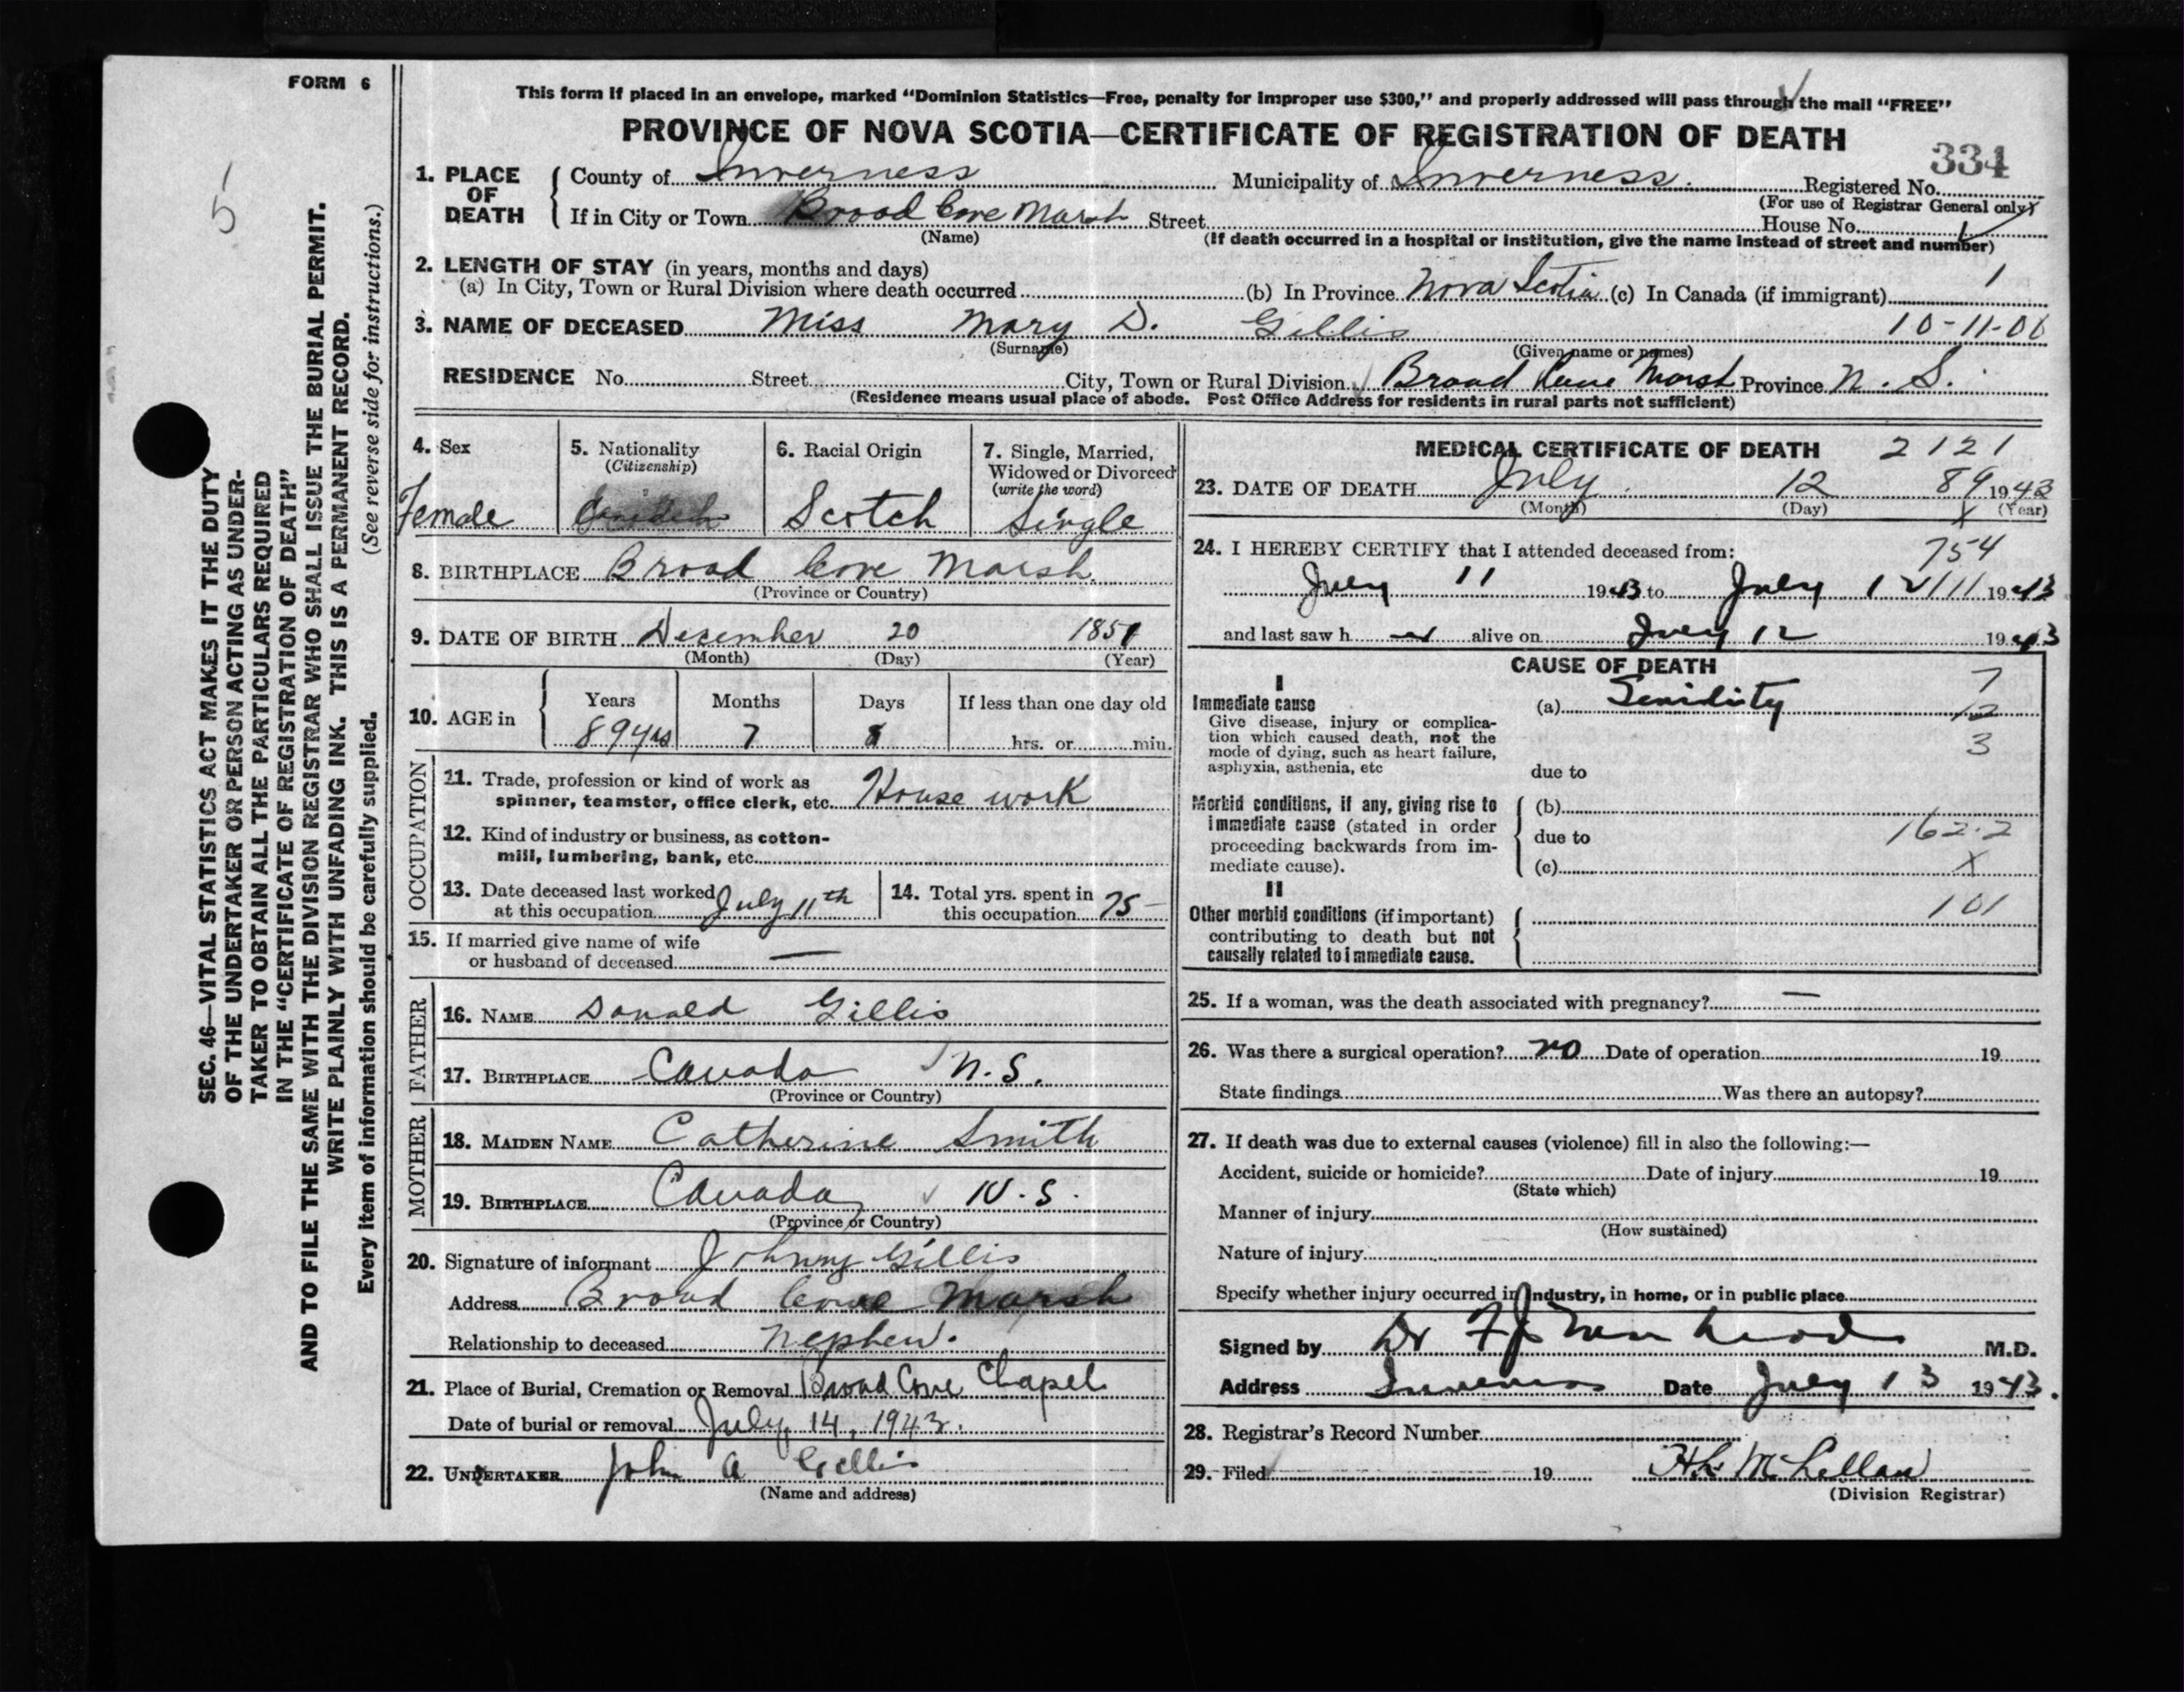 FORM 6
This form if placed in an envelope, marked “Dominion Statistics—Free, penalty for improper use $300,” and properly addressed will pass through the mail “FREE”
PROVINCE OF NOVA SCOTIA—CERTIFICATE OF REGISTRATION OF DEATH
334
5
1. PLACE OF DEATH
County of Inverness Municipality of Inverness. Registered No.
(For use of Registrar General only)
If in City or Town Broad Cove Marsh Street House No.
(Name) (If death occurred in a hospital or institution, give the name instead of street and number)
2. LENGTH OF STAY (in years, months and days)
(a) In City, Town or Rural Division where death occurred (b) In Province Nova Scotia (c) In Canada (if immigrant) 1
3. NAME OF DECEASED Miss Mary D. Gillis 10-11-00
(Surname) (Given name or names)
RESIDENCE No. Street City, Town or Rural Division Broad Cove Marsh Province N. S.
(Residence means usual place of abode. Post Office Address for residents in rural parts not sufficient)
4. Sex
Female
5. Nationality
(Citizenship)
6. Racial Origin
Scotch
7. Single, Married,
Widowed or Divorced
(write the word)
Single
8. BIRTHPLACE Broad Cove Marsh.
(Province or Country)
9. DATE OF BIRTH December 20
(Month) (Day) (Year)
10. AGE in
Years Months Days If less than one day old
89 yrs 7 hrs. or min.
OCCUPATION
11. Trade, profession or kind of work as
spinner, teamster, office clerk, etc. House work
12. Kind of industry or business, as cotton-
mill, lumbering, bank, etc.
13. Date deceased last worked
at this occupation July 11th
14. Total yrs. spent in
this occupation 75 -
15. If married give name of wife
or husband of deceased —
FATHER
16. NAME Donald Gillis
17. BIRTHPLACE Canada N. S.
(Province or Country)
MOTHER
18. MAIDEN NAME Catherine Smith
19. BIRTHPLACE Canada N. S.
(Province or Country)
20. Signature of informant Johnny Gillis
Address Broad Cove Marsh
Relationship to deceased Nephew.
21. Place of Burial, Cremation or Removal Broad Cove Chapel
Date of burial or removal July 14, 1943.
22. UNDERTAKER John A Gillis
(Name and address)
MEDICAL CERTIFICATE OF DEATH 2121
23. DATE OF DEATH July 12 89 1943
(Month) (Day) (Year)
X
24. I HEREBY CERTIFY that I attended deceased from: 754
July 11 1943 to July 12/11 1943
and last saw h er alive on July 12 1943
CAUSE OF DEATH
I
Immediate cause
Give disease, injury or complica-
tion which caused death, not the
mode of dying, such as heart failure,
asphyxia, asthenia, etc
(a) Senility
7
12
3
due to
Morbid conditions, if any, giving rise to
immediate cause (stated in order
proceeding backwards from im-
mediate cause).
(b)
due to 162.2
(c) X
II
Other morbid conditions (if important)
contributing to death but not
causally related to immediate cause.
101
25. If a woman, was the death associated with pregnancy? —
26. Was there a surgical operation? no Date of operation 19
State findings Was there an autopsy?
27. If death was due to external causes (violence) fill in also the following:—
Accident, suicide or homicide? Date of injury 19
(State which)
Manner of injury
(How sustained)
Nature of injury
Specify whether injury occurred in industry, in home, or in public place
Signed by Dr M.D.
Address Inverness Date July 13 1943.
28. Registrar's Record Number
29. Filed 19 McLellan
(Division Registrar)
SEC. 46—VITAL STATISTICS ACT MAKES IT THE DUTY
OF THE UNDERTAKER OR PERSON ACTING AS UNDER-
TAKER TO OBTAIN ALL THE PARTICULARS REQUIRED
IN THE “CERTIFICATE OF REGISTRATION OF DEATH”
AND TO FILE THE SAME WITH THE DIVISION REGISTRAR WHO SHALL ISSUE THE BURIAL PERMIT.
WRITE PLAINLY WITH UNFADING INK. THIS IS A PERMANENT RECORD.
Every item of information should be carefully supplied. (See reverse side for instructions.)